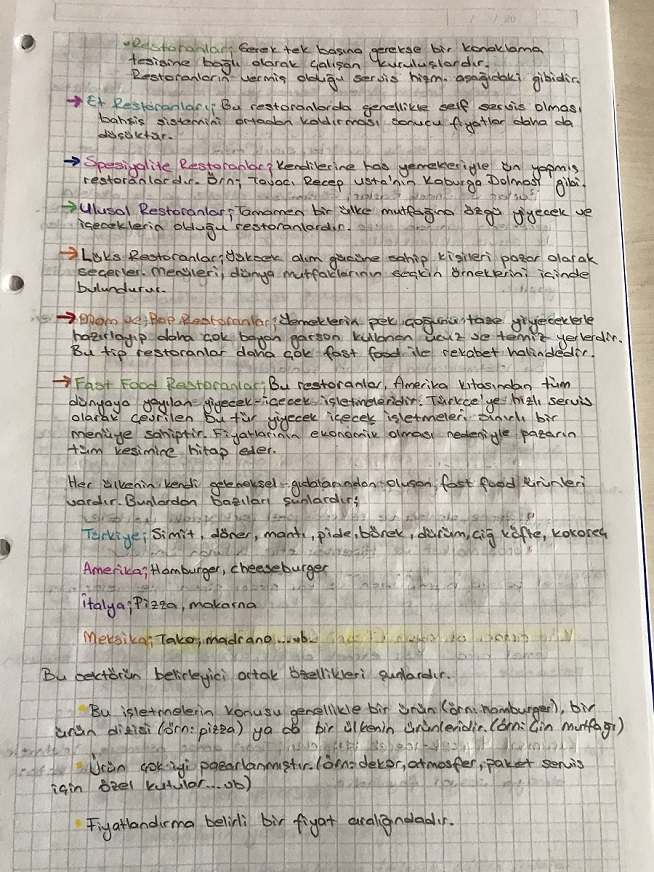 Restoranlar; Gerek tek başına gerekse bir konaklama
tesisine bağlı olarak çalışan kuruluşlardır.
Restoranların vermiş olduğu servis hizm. aşağıdaki gibidir.
→ Et Restoranları; Bu restoranlarda genellikle self servis olması
bahşiş sistemini ortadan kaldırması sonucu fiyatlar daha da
düşüktür.
→ Spesiyalite Restoranlar; Kendilerine has yemekleriyle ün yapmış
restoranlardır. Örn; Tavacı Recep Usta'nın Kaburga Dolması gibi.
→ Ulusal Restoranlar; Tamamen bir ülke mutfağına özgü yiyecek ve
içeceklerin olduğu restoranlardır.
→ Lüks Restoranlar; Yüksek alım gücüne sahip kişileri pazar olarak
seçerler. Menüleri, dünya mutfaklarının seçkin örneklerini içinde
bulundurur.
→ Mom ve Pop Restoranlar; Yemeklerin pek çoğunu taze yiyeceklerle
hazırlayıp daha çok bayan garson kullanan ucuz ve temiz yerlerdir.
Bu tip restoranlar daha çok fast food ile rekabet halindedir.
→ Fast Food Restoranlar; Bu restoranlar, Amerika kıtasından tüm
dünyaya yayılan yiyecek-içecek işletmeleridir. Türkçe'ye hızlı servis
olarak çevrilen bu tür yiyecek içecek işletmeleri sınırlı bir
menüye sahiptir. Fiyatlarının ekonomik olması nedeniyle pazarın
tüm kesimine hitap eder.
Her ülkenin kendi geleneksel gıdalarından oluşan fast food ürünleri
vardır. Bunlardan bazıları şunlardır;
Türkiye; Simit, döner, mantı, pide, börek, dürüm, çiğ köfte, kokoreç
Amerika; Hamburger, cheeseburger
İtalya; Pizza, makarna
Meksika; Tako, madrano...vb.
Bu sektörün belirleyici ortak özellikleri şunlardır.
• Bu işletmelerin konusu genellikle bir ürün (örn: hamburger), bir
ürün dizisi (örn: pizza) ya da bir ülkenin ürünleridir. (örn: Çin mutfağı)
• Ürün çok iyi pazarlanmıştır. (örn: dekor, atmosfer, paket servis
için özel kutular...vb)
• Fiyatlandırma belirli bir fiyat aralığındadır.